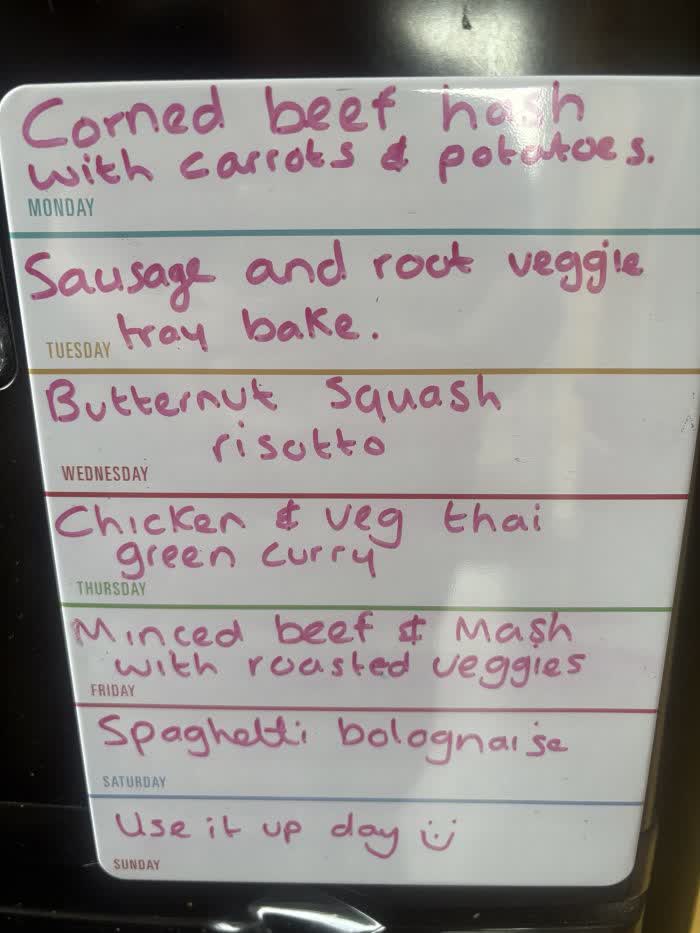 Corned beef hash
with carrots & potatoes.
MONDAY
Sausage and root veggie
tray bake.
TUESDAY
Butternut squash
risotto
WEDNESDAY
Chicken & veg thai
green curry
THURSDAY
Minced beef & Mash
with roasted veggies
FRIDAY
Spaghetti bolognaise
SATURDAY
Use it up day :)
SUNDAY